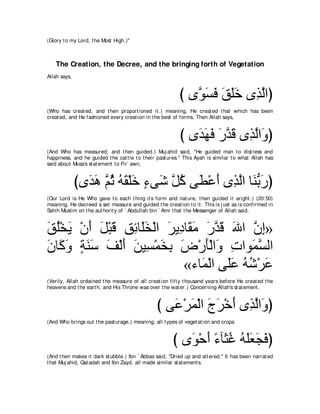 (Glory to my Lord, the Most High.)"
The Creation, the Decree, and the bringing forth of Vegetation
Allah says,
﴿ الَّذِى خَلَقَ فَسَوَّى ﴾
(Who has created, and then proportioned it.) meaning, He created that which has been
created, and He fashioned every creation in the best of forms. Then Allah says,
﴿ وَالَّذِى قَدَّرَ فَهَدَى ﴾
(And Who has measured; and then guided.) Mujahid said, "He guided man to distress and
happiness, and he guided the cattle to their pastures." This Ayah is similar to what Allah has
said about Musa's statement to Fir`awn,
﴿رَبُّنَا الَّذِى أَعْطَى كُلَّ شَىءٍ خَلْقَهُ ثُمَّ هَدَى﴾
(Our Lord is He Who gave to each thing its form and nature, then guided it aright.) (20:50)
meaning, He decreed a set measure and guided the creation to it. This is just as is confirmed in
Sahih Muslim on the authority of `Abdullah bin `Amr that the Messenger of Allah said,
«إِنَّ اللهَ قَدَّرَ مَقَادِيرَ الْخَلَائِقِ قَبْلَ أَنْ يَخْلُقَ
السَّموَاتِ وَالْأَرْضَ بِخَمْسِينَ أَلْفَ سَنَةٍ وَكَانَ
عَرْشُهُ عَلَى الْمَاء»
(Verily, Allah ordained the measure of all creation fifty thousand years before He created the
heavens and the earth, and His Throne was over the water.) Concerning Allah's statement,
﴿ وَالَّذِى أَخْرَجَ الْمَرْعَى ﴾
(And Who brings out the pasturage,) meaning, all types of vegetation and crops.
﴿ فَجَعَلَهُ غُثَآءً أَحْوَى ﴾
(And then makes it dark stubble.) Ibn `Abbas said, "Dried up and altered." It has been narrated
that Mujahid, Qatadah and Ibn Zayd, all made similar statements.